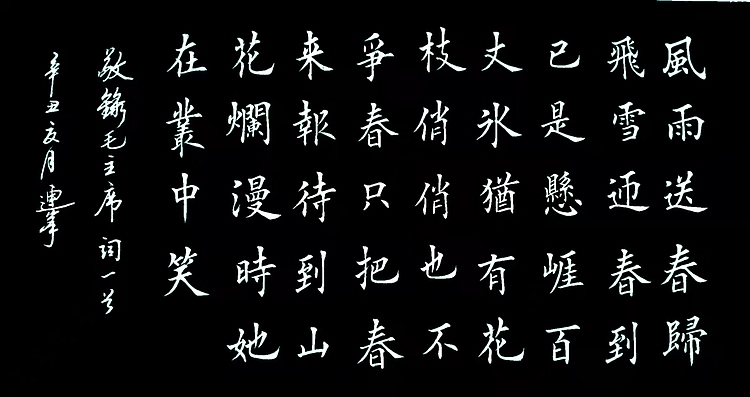 風雨送春歸
飛雪迎春到
已是懸崕百
丈氷猶有花
枝俏俏也不
爭春只把春
来報待到山
花爛漫時她
在叢中笑
敬錄毛主席詞一首
辛丑月連